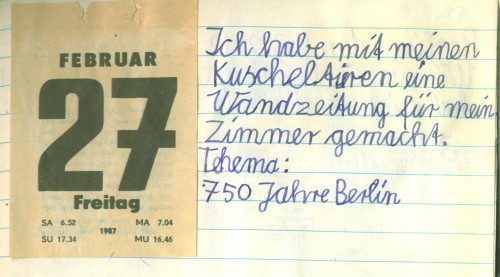 FEBRUAR
27
Freitag
SA 6.52 MA 7.04
1987
SU 17.34 MU 16.46
Ich habe mit meinen
Kuscheltieren eine
Wandzeitung für mein
Zimmer gemacht.
Thema:
750 Jahre Berlin